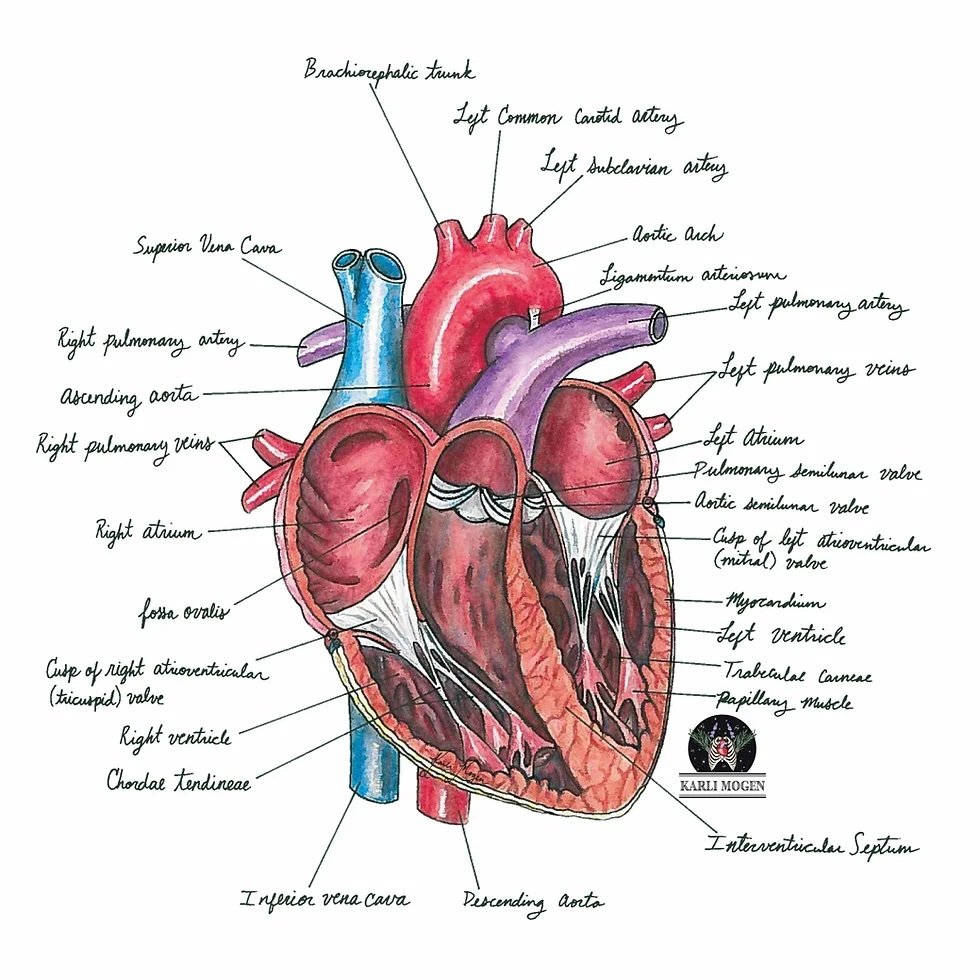 Brachiocephalic trunk
Left Common Carotid artery
Left subclavian artery
Superior Vena Cava
Aortic Arch
Ligamentum arteriosum
Left pulmonary artery
Right pulmonary artery
Left pulmonary veins
Ascending aorta
Right pulmonary veins
Left Atrium
Pulmonary semilunar valve
Aortic semilunar valve
Right atrium
Cusp of left atrioventricular
(mitral) valve
fossa ovalis
Myocardium
Left ventricle
Cusp of right atrioventricular
(tricuspid) valve
Trabeculae Carneae
Papillary Muscle
Right ventricle
Chordae tendineae
KARLI MOGEN
Interventricular Septum
Inferior vena cava
Descending Aorta